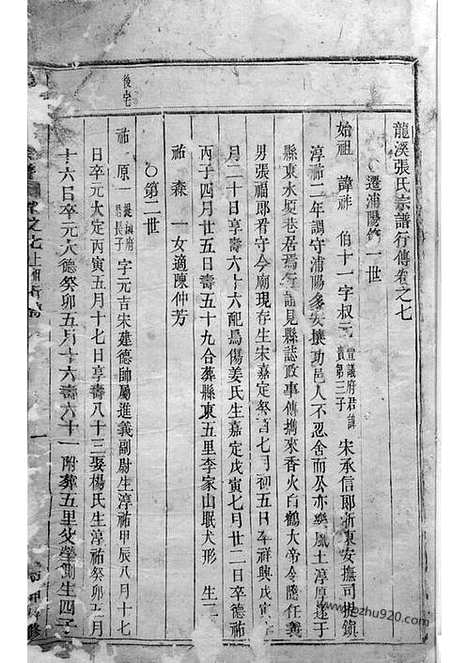 龍溪張氏宗譜行傳卷之七
○遷浦陽第一世
始祖 諱祥 伯十一字叔元 宣議府君諱 賁第三子 宋承信郎浙東安撫司提鎮
淳祐二年調守浦陽多安攘功邑人不忍舍而公亦樂風土淳厚遂于
縣東水埂巷居焉行誼見縣誌政事傳擕來香火白鶴大帝令隨任義
男張福郎看守今廟現存生宋嘉定癸酉七月初五日卒祥興戊寅
月二十日享壽六十六配烏傷姜氏生嘉定戊寅七月廿二日卒德祐
丙子四月廿五日壽五十九合葬縣東五里李家山眠犬形 生二
祐 森 一女適陳仲芳
○第二世
後宅
祐 原一 提鎮府 君長子 字元吉宋建德帥屬進義副尉生淳祐甲辰八月十七
日卒元大定丙寅五月十七日享壽八十三娶楊氏生淳祐癸卯正月
十六日卒元大德癸卯五月十六壽六十一 附葬五里父塋側生四子
卷之七上
一
www.jiezhu920.com